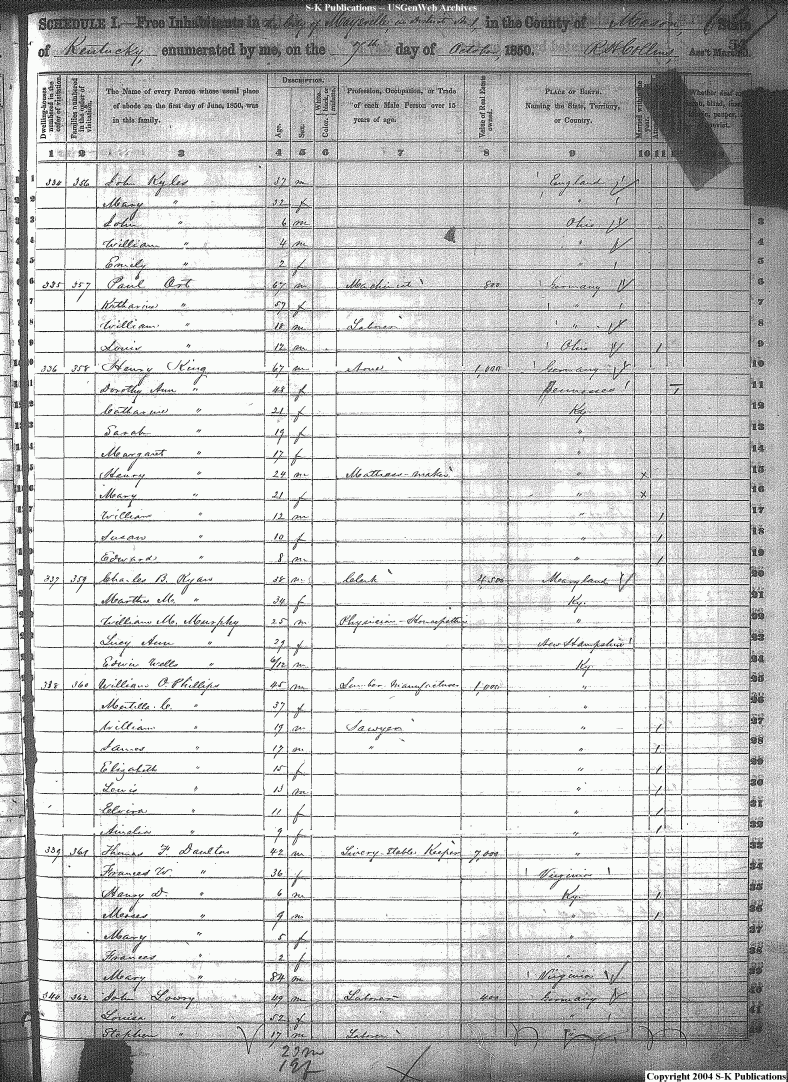 S-K Publications – USGenWeb Archives
SCHEDULE I.—Free Inhabitants in City of Maysville in District No 1 in the County of Mason State
of Kentucky, enumerated by me, on the 7th day of October, 1850. R H Collins, Ass't Marshal.
Dwelling-houses numbered in the order of visitation. Families numbered in the order of visitation. The Name of every Person whose usual place of abode on the first day of June, 1850, was in this family. DESCRIPTION. Age. Sex. Color, White, black, or mulatto. Profession, Occupation, or Trade of each Male Person over 15 years of age. Value of Real Estate owned. PLACE OF BIRTH. Naming the State, Territory, or Country. Married within the year. Whether deaf and
1 2 3 4 5 6 7 8 9 10 11
1 334 356 John Kyles 37 m England
2 Mary " 32 f "
3 John " 6 m Ohio 3
4 William " 4 m " 4
5 Emily " 2 f " 5
6 335 357 Paul Ort 67 m Machinist 800 Germany 6
7 Katharine " 57 f " 7
8 William " 18 m Laborer " 8
9 Louis " 12 m Ohio / 9
10 336 358 Henry King 67 m None 1,000 Germany 10
11 Dorothy Ann " 48 f Tennessee 11
12 Catharine " 21 f Ky 12
13 Sarah " 19 f " 13
14 Margaret " 17 f " 14
15 Henry " 24 m Mattrass-maker " x 15
16 Mary " 21 f " x 16
17 William " 12 m " / 17
18 Susan " 10 f " / 18
19 Edward " 8 m " / 19
337 359 Charles B. Ryan 38 m Clerk 4,500 Maryland 20
Martha M. " 34 f Ky. 21
William M. Murphy 25 m Physician - Homeopathic " 22
Lucy Ann " 29 f New Hampshire 23
Edwin Wells " 6/12 m Ky. 24
338 360 William O. Phillips 45 m Lumber Manufacturer 1,000 " 25
Mertilla C. " 37 f " 26
William " 19 m Sawyer " / 27
James " 17 m " " / 28
Elizabeth " 15 f " / 29
Lewis " 13 m " / 30
Elvira " 11 f " / 31
Amelia " 9 f " / 32
339 361 Thomas F. Daulton 42 m Livery Stable Keeper 7,000 " 33
Frances W. " 36 f Virginia 34
Henry D. " 6 m Ky. / 35
Moses " 9 m " / 36
Mary " 5 f " 37
Frances " 2 f " 38
Mary " 84 m Virginia 39
340 362 John Lowry 49 m Laborer 400 Germany 40
Louisa " 52 f " 41
Stephen " 17 m Laborer
23 m
19 f
Copyright 2004 S-K Publications